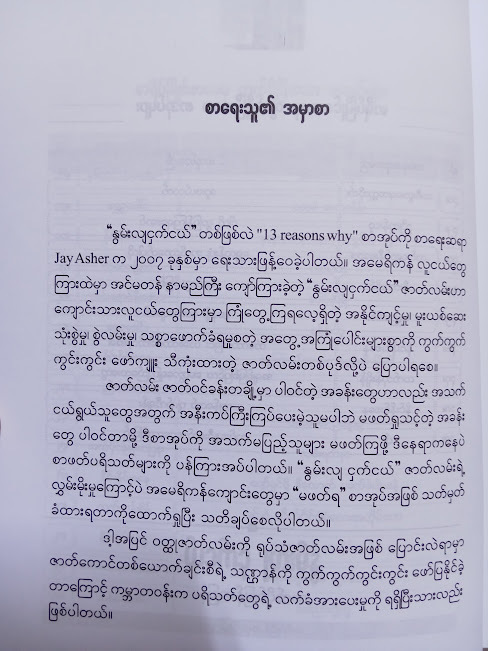 စာရေးသူ၏ အမှာစာ
“နွမ်းလျငှက်ငယ်” တစ်ဖြစ်လဲ "13 reasons why" စာအုပ်ကို စာရေးဆရာ
Jay Asher က ၂၀၀၇ ခုနှစ်မှာ ရေးသားဖြန့်ဝေခဲ့ပါတယ်။ အမေရိကန် လူငယ်တွေ
ကြားထဲမှာ အင်မတန် နာမည်ကြီး ကျော်ကြားခဲ့တဲ့ “နွမ်းလျငှက်ငယ်” ဇာတ်လမ်းဟာ
ကျောင်းသားလူငယ်တွေကြားမှာ ကြုံတွေ့ကြရလေ့ရှိတဲ့ အနိုင်ကျင့်မှု၊ မူးယစ်ဆေး
သုံးစွဲမှု၊ စွဲလမ်းမှု၊ သစ္စာဖောက်ခံရမှုစတဲ့ အတွေ့အကြုံပေါင်းများစွာကို ကွက်ကွက်
ကွင်းကွင်း ဖော်ကျူး သီကုံးထားတဲ့ ဇာတ်လမ်းတစ်ပုဒ်လို့ပဲ ပြောပါရစေ။
ဇာတ်လမ်း ဇာတ်ဝင်ခန်းတချို့မှာ ပါဝင်တဲ့ အခန်းတွေဟာလည်း အသက်
ငယ်ရွယ်သူတွေအတွက် အနီးကပ်ကြီးကြပ်ပေးမဲ့သူမပါဘဲ မဖတ်ရှုသင့်တဲ့ အခန်း
တွေ ပါဝင်တာမို့ ဒီစာအုပ်ကို အသက်မပြည့်သူများ မဖတ်ကြဖို့ ဒီနေရာကနေပဲ
စာဖတ်ပရိသတ်များကို ပန်ကြားအပ်ပါတယ်။ “နွမ်းလျ ငှက်ငယ်” ဇာတ်လမ်းရဲ့
လွှမ်းမိုးမှုကြောင့်ပဲ အမေရိကန်ကျောင်းတွေမှာ “မဖတ်ရ” စာအုပ်အဖြစ် သတ်မှတ်
ခံထားရတာကိုထောက်ရှုပြီး သတိချပ်စေလိုပါတယ်။
ဒ့ါအပြင် ဝတ္ထုဇာတ်လမ်းကို ရုပ်သံဇာတ်လမ်းအဖြစ် ပြောင်းလဲရာမှာ
ဇာတ်ကောင်တစ်ယောက်ချင်းစီရဲ့ သဏ္ဌာန်ကို ကွက်ကွက်ကွင်းကွင်း ဖော်ပြနိုင်ခဲ့
တာကြောင့် ကမ္ဘာတဝန်းက ပရိသတ်တွေရဲ့ လက်ခံအားပေးမှုကို ရရှိပြီးသားလည်း
ဖြစ်ပါတယ်။